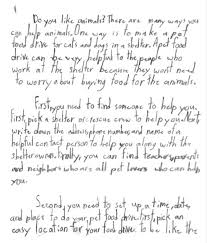 Do you like animals? There are many ways you
can help animals. One way is to make a pet
food drive for cats and dogs in a shelter. A pet food
drive can be very helpful to the people who
work at the shelter because they won't need
to worry about buying food for the animals.
First, you need to find someone to help you.
First pick a shelter or rescue crew to help you. Next
write down the address, phone number, and name of a
helpful contact person to help you along with the
shelter owner. Finally, you can find teachers, parents
and neighbors who are all pet lovers who can help
you.
Second, you need to set up a time, date,
and place to do your pet food drive. First, pick an
easy location for your food drive to be like the